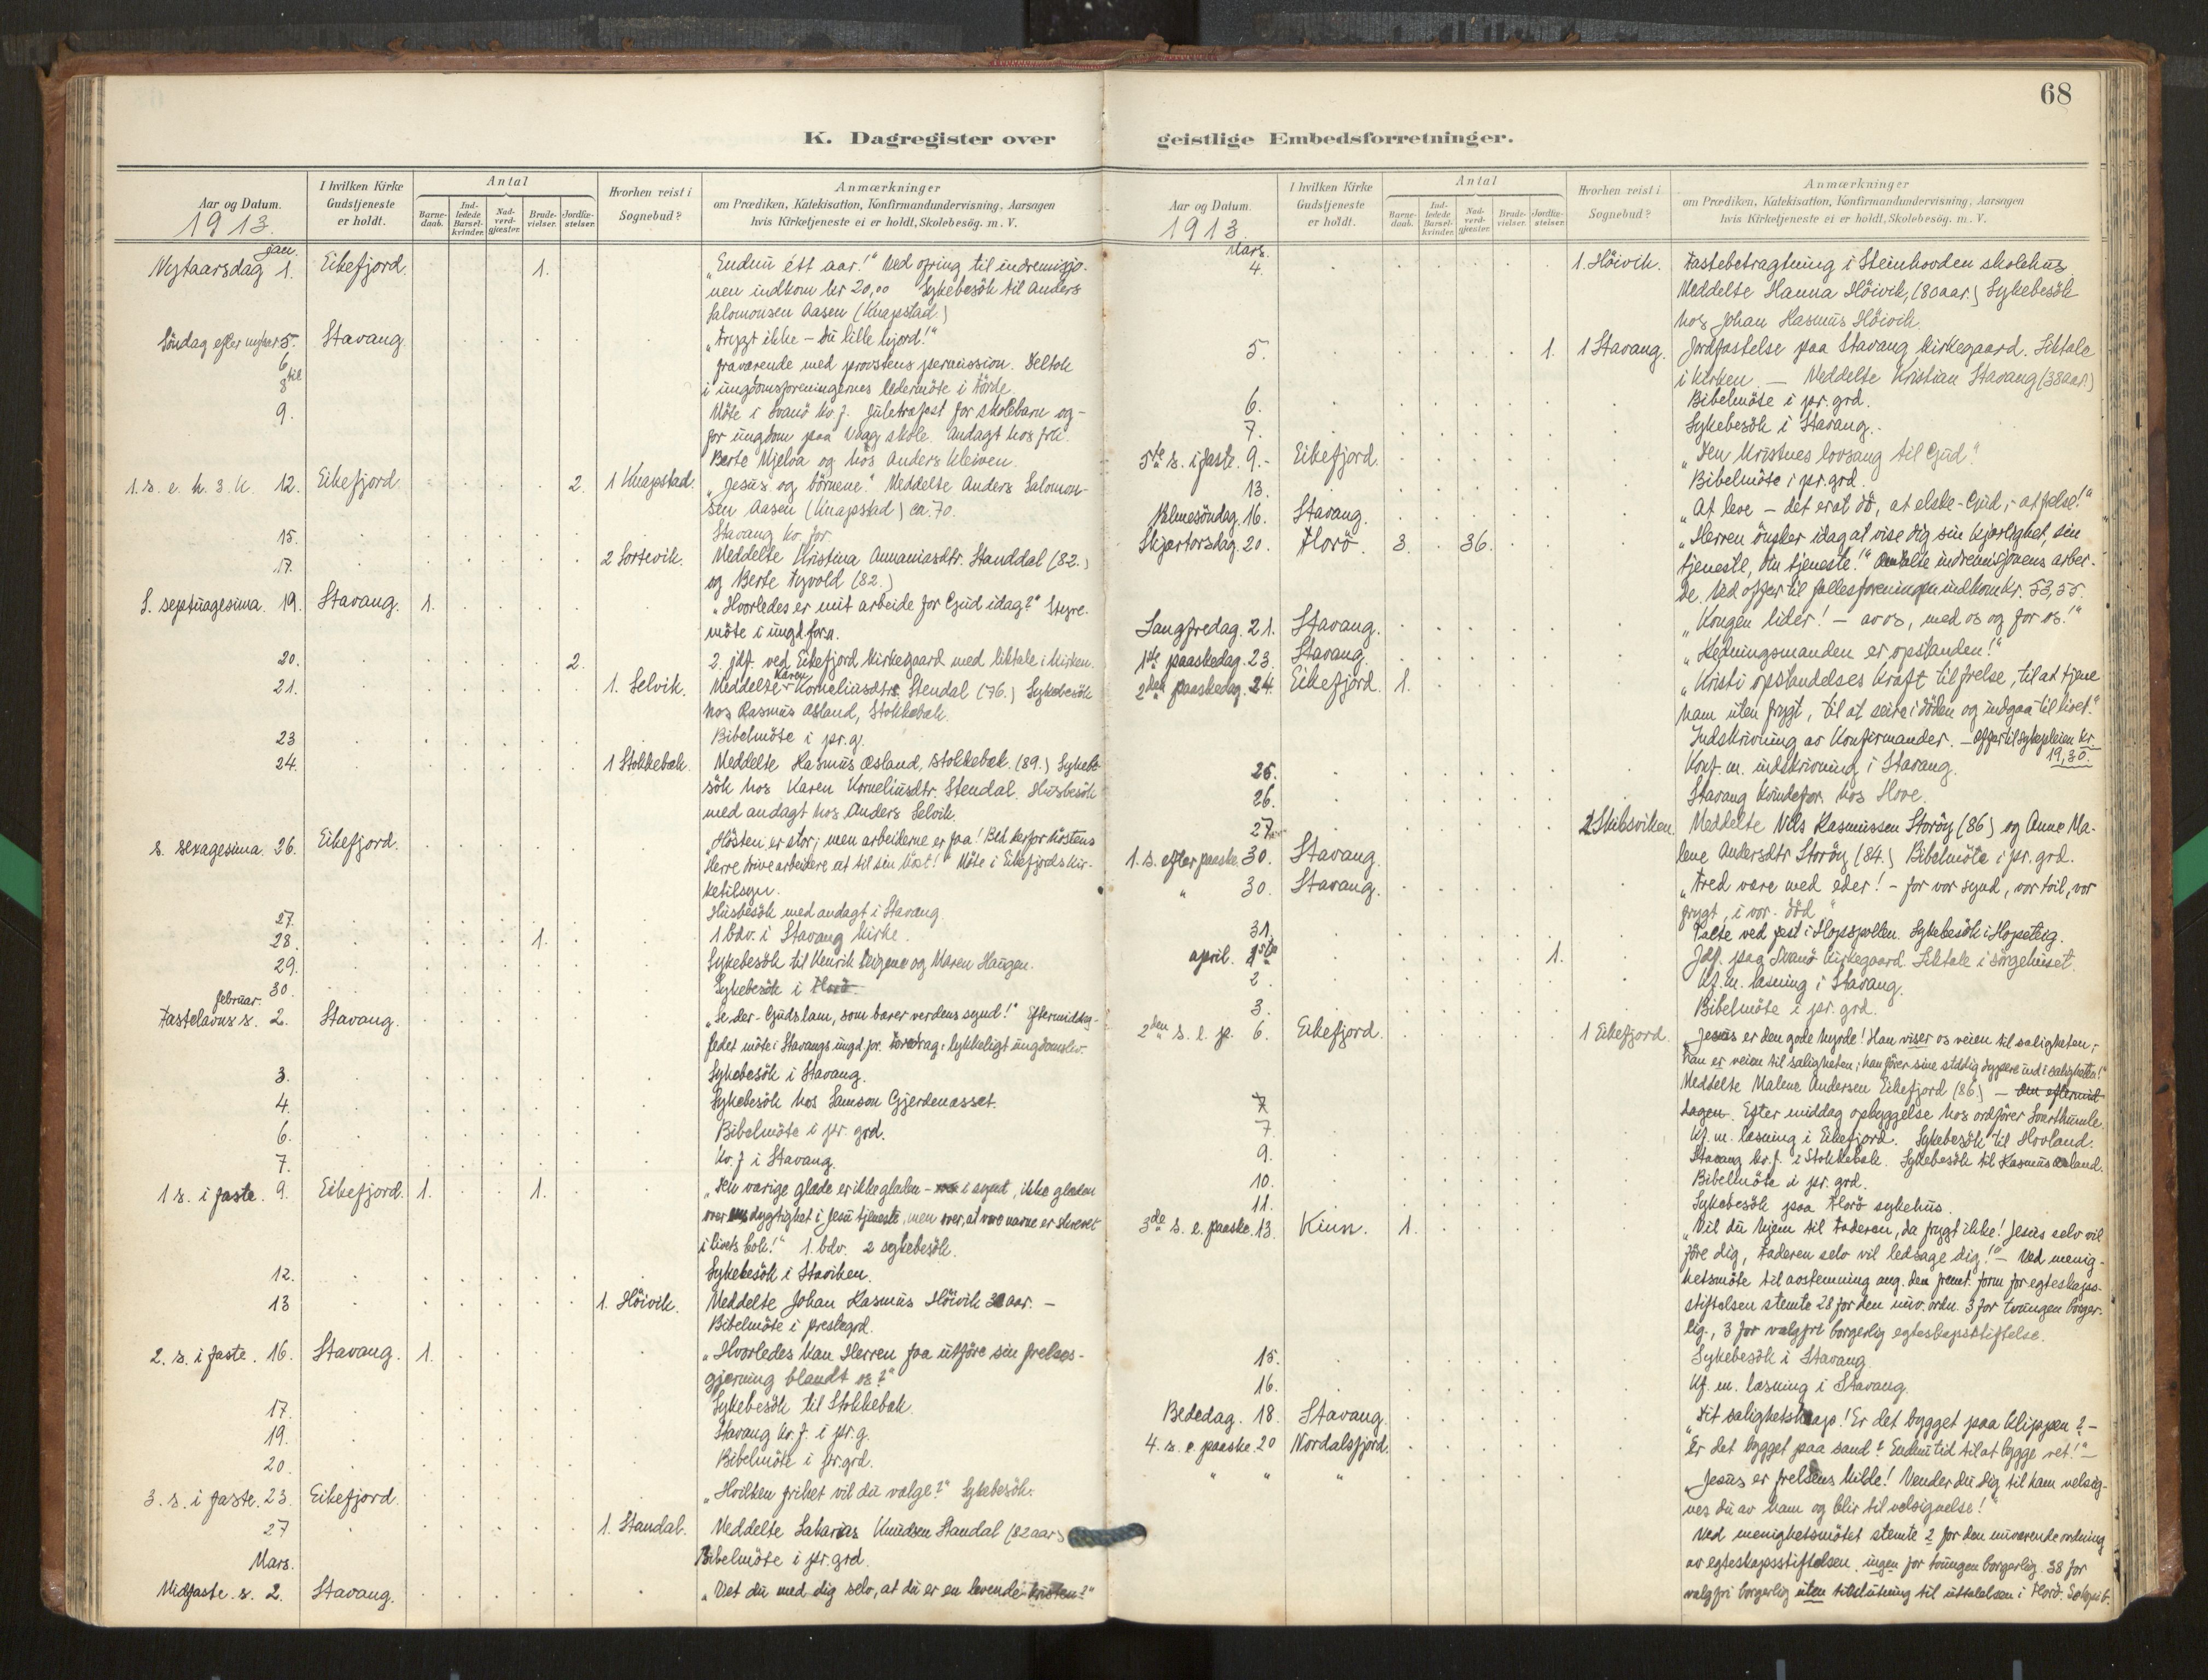 68
K. Dagregister over geistlige Embedsforretninger.
Aar og Datum.
I hvilken Kirke Gudstjeneste er holdt.
Antal
Barne-daab.
Ind-ledede Barsel-kvinder.
Nad-verd-gjæster.
Brude-vielser.
Jordfæ-stelser.
Hvorhen reist i Sognebud?
Anmærkninger
om Prædiken, Katekisation, Konfirmandundervisning, Aarsagen
hvis Kirketjeneste ei er holdt, Skolebesög. m. V.
1913.
Jan.
Nytaarsdag 1. Eikefjord. 1. „Endnu étt aar!“ Ved ofring til indremisjo-
nen indkom kr 20,00 Sykebesök til Anders
Salomonsen Aasen (Knapstad.)
Söndag efter nytaar 5. Stavang. „Frygt ikke – du lille hjord!“
6 til 8 Fraværende med provstens permission. Deltok
i ungdomsforeningernes ledermöte i Förde.
9. Möte i Svanö kv.f. Juletræfest for skolebarn og
for ungdom paa Vaag skole. Andagt hos frk.
Berte Mjelva og hos Anders Kleiven.
1. s. e. h. 3. k. 12. Eikefjord 2. 1 Knapstad. „Jesus og börnene.“ Meddelte Anders Salomon-
sen Aasen (Knapstad) ca. 70.
15. Stavang kv. for.
17. 2 Sortevik. Meddelte Kristina Annaniasdtr. Standdal (82.)
og Berte Tyvold (82.)
S. septuagesima. 19. Stavang. 1. „Hvorledes er mit arbeide for Gud idag?“ Styre-
möte i ungd.for.n.
20. 2. 2. jdf. ved Eikefjord kirkegaard med liktale i kirken.
21. 1. Selvik. Meddelte Karen Korneliusdtr. Stendal (76.) Sykebesök
hos Rasmus Æsland, Stokkebæk.
23 Bibelmöte i pr.g.
24. 1 Stokkebæk. Meddelte Rasmus Æsland, Stokkebæk. (89.) Sykebe-
sök hos Karen Korneliusdtr. Stendal. Husbesök
med andagt hos Anders Selvik.
S. sexagesima. 26. Eikefjord. „Hösten er stor; men arbeiderne er faa! Bed derfor höstens
Herre drive arbeidere ut til sin höst!“ Möte i Eikefjords kir-
ketilsyn.
27. Husbesök med andagt i Stavang.
28. 1. 1 bdv. i Stavang kirke.
29. Sykebesök til Henrik og Maren Haugen.
30. Sykebesök i Florö.
februar.
Fastelavns s. 2. Stavang. „Se der – Guds lam, som bærer verdens synd!“ Eftermiddag
ledet möte i Stavangs ungd.for. Foredrag: lykkeligt ungdomsliv.
3. Sykebesök i Stavang.
4. Sykebesök hos Samson Gjerdenasset.
6. Bibelmöte i pr. grd.
7. Kv. f i Stavang.
1 s. i faste. 9. Eikefjord. 1. 1. „Den varige glæde er ikke glæden – i synet, ikke glæden
over dygtighet i Jesu tjeneste, men over, at vore navne er skrevet
i livets bok!“ 1. bdv. 2 sykebesök.
12. Sykebesök i Staviken.
13 1. Höivik. Meddelte Johan Rasmus Höivik aar. –
Bibelmöte i prestegrd.
2. s. i faste. 16. Stavang. 1. „Hvorledes kan Herren faa utföre sin frelses-
gjerning blandt os?“
17. Sykebesök til Stokkebæk.
19. Stavang kv.f. i pr.g.
20. Bibelmöte i pr.grd.
3. s. i faste. 23. Eikefjord. „Hvilken frihet vil du vælge?“ Sykebesök.
27 1. Standal. Meddelte Sakarias Knudsen Standal (82 aar)
Bibelmöte i pr.grd.
Mars.
Midfaste. s. 2. Stavang. „Vet du med dig selv, at du er en levende kristen?“
Aar og Datum.
I hvilken Kirke Gudstjeneste er holdt.
Antal
Barne-daab.
Ind-ledede Barsel-kvinder.
Nad-verd-gjæster.
Brude-vielser.
Jordfæ-stelser.
Hvorhen reist i Sognebud?
Anmærkninger
om Prædiken, Katekisation, Konfirmandundervisning, Aarsagen
hvis Kirketjeneste ei er holdt, Skolebesög. m. V.
1913.
Mars.
4. 1. Höivik. Fastebetragtning i Steinhovden skolehus.
Meddelte Hanna Höivik, (80 aar.) Sykebesök
hos Johan Rasmus Höivik.
5. 1. 1 Stavang. Jordfæstelse paa Stavang kirkegaard. Liktale
i kirken. – Meddelte Kristian Stavang (38 aar)
6. Bibelmöte i pr. grd.
7. Sykebesök i Stavang.
5te s. i faste. 9. Eikefjord. „Den kristnes lovsang til Gud“
13. Bibelmöte i pr.grd.
Palmesöndag. 16. Stavang. „At leve – det er at dö, at elske Gud, – at frelse!“
Skjærtorsdag. 20. Florö. 3. 36. „Herren önsker idag at vise dig sin kjærlighet, sin
tjeneste, din tjeneste!“ Omtalte indremisjonens arbei-
de. Ved offer til fællesforeningen indkom kr. 53,55.
Langfredag. 21. Stavang. „Kongen lider! – av os, med os og for os!“
1ste paaskedag. 23. Stavang. „Redningsmanden er opstanden!“
2den paaskedag. 24. Eikefjord. 1. „Kristi opstandelses kraft til frelse, til at tjene
ham uten frygt, til at seire i döden og indgaa til livet.“
Indskrivning av konfirmander. – Offer til sykepleien kr.
19,30.
25. Konf. m. indskrivning i Stavang.
26. Stavang kvindefor. hos Hove.
27 2 Skibsviken. Meddelte Nils Rasmussen Storöy (86) og Anne Ma-
lene Andersdtr Storöy (84.) Bibelmöte i pr. grd.
1. s. efter paaske. 30. Stavang. „Fred være med eder! – for vor synd, vor tvil, vor
„ 30. Stavang. frygt, i vor död“
31. Talte ved fest i Hopspollen. Sykebesök i Hopeteig.
april. 1ste 1. Jdf. paa Svanö kirkegaard. Liktale i sörgehuset.
2. Kf. m. læsning i Stavang.
3. Bibelmöte i pr. grd.
2den s. e. p. 6. Eikefjord. 1 Eikefjord. Jesus er den gode hyrde! Han viser os veien til saligheten;
han er veien til saligheten; han förer sine stadig dypere ind i saligheten!“
Meddelte Malene Andersen Eikefjord (86) – den eftermid-
7 dagen. Efter middag opbyggelse hos ordförer Svarthumle.
7 Kf. m. læsning i Eikefjord. Sykebesök til Hovland.
9. Stavang kv. f. i Stokkebæk. Sykebesök til Rasmus Æsland.
10. Bibelmöte i pr. grd.
11. Sykebesök paa Florö sykehus.
3de s. e. paaske. 13. Kinn. 1. „Vil du hjem til Faderen, da frygt ikke! Jesus selv vil
före dig, Faderen selv vil ledsage dig!“ – Ved menig-
hetsmöte til avstemning ang. den fremt. form for egteskaps-
stiftelsen stemte 28 for den nuv. ordn. 3 for tvungen borger-
lig, 3 for valgfri borgerlig egteskapsstiftelse.
15. Sykebesök i Stavang.
16. Kf. m. læsning i Stavang.
Bededag. 18. Stavang. „Dit salighetshaap! Er det bygget paa klippen? –
4. s. e. paaske. 20 Nordalsfjord. Er det bygget paa sand? Endnu tid til at bygge ret!“ –
„ „ „ „Jesus er frelsens kilde! Vender du dig til ham velsig-
nes du av ham og blir til velsignelse!“
Ved menighetsmötet stemte 2 for den nuværende ordning
av egteskapsstiftelsen. ingen for tvungen borgerlig. 38 for
valgfri borgerlig uten tilslutning til uttalelsen i Florö.